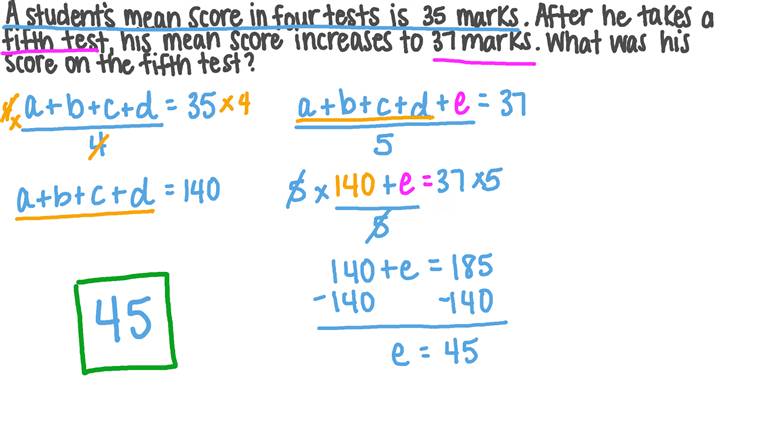 A student's mean score in four tests is 35 marks. After he takes a
fifth test, his mean score increases to 37 marks. What was his
score on the fifth test?
4 × a+b+c+d = 35 × 4
4
a+b+c+d = 140
a+b+c+d + e = 37
5
5 × 140 + e = 37 × 5
5
140 + e = 185
-140 -140
e = 45
45